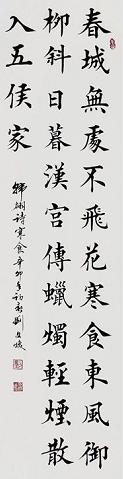 春城無處不飛花寒食東風御
柳斜日暮漢宮傳蠟燭輕煙散
入五侯家
韓翃詩寒食辛卯年初秋劉